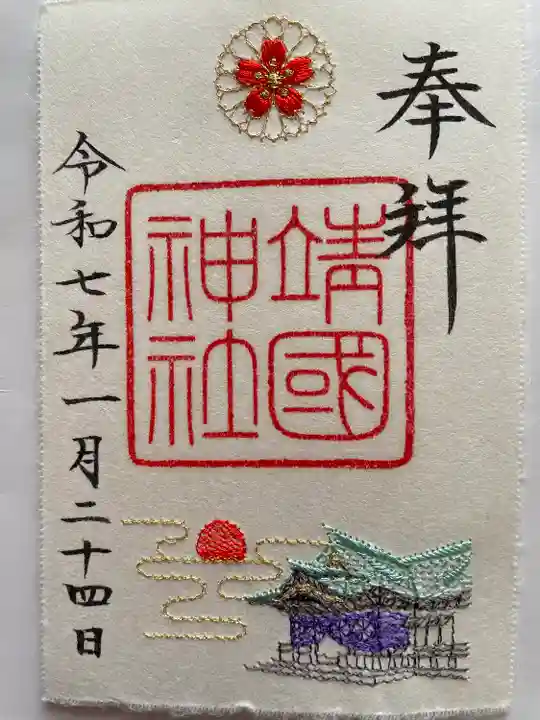 奉拝
靖國
神社
令和七年一月二十四日